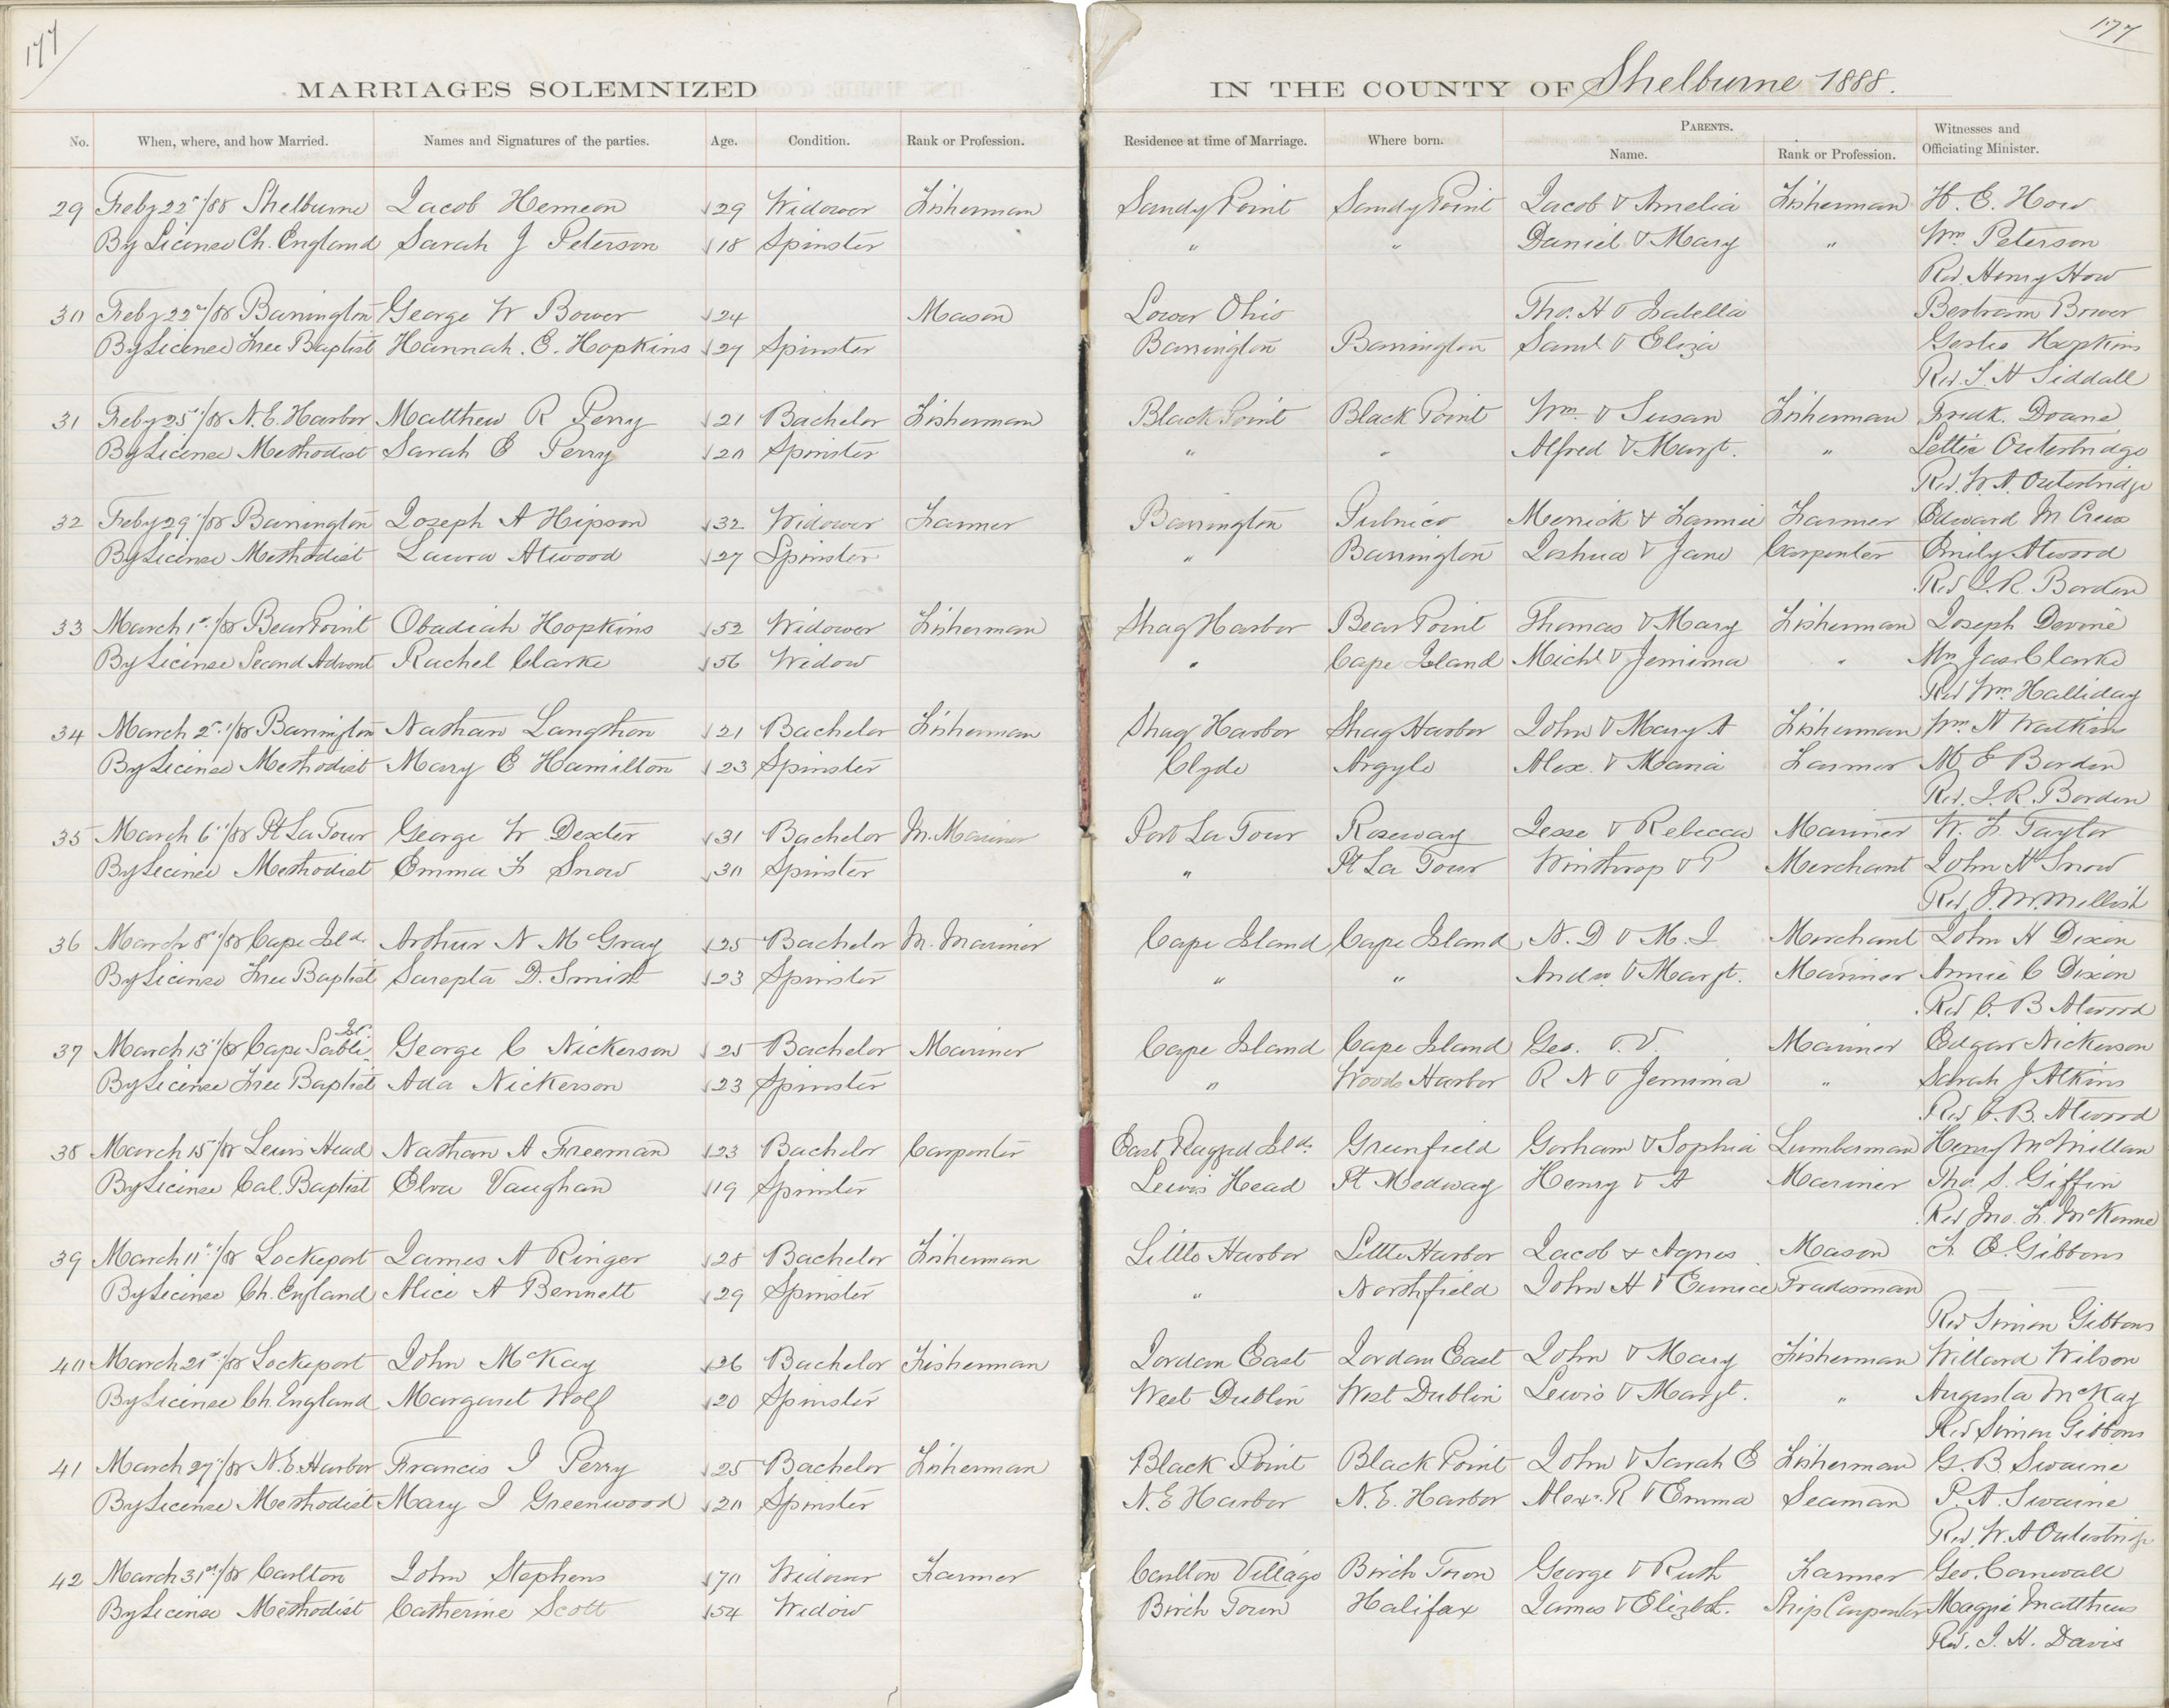 177
177
MARRIAGES SOLEMNIZED IN THE COUNTY OF Shelburne 1888.
No. When, where, and how Married. Names and Signatures of the parties. Age. Condition. Rank or Profession. Residence at time of Marriage. Where born. PARENTS. Name. Rank or Profession. Witnesses and Officiating Minister.
29 Feby 22nd/88 Shelburne Jacob Hemeon 29 Widower Fisherman Sandy Point Sandy Point Jacob & Amelia Fisherman H. E. How
By License Ch. England Sarah J Peterson 18 Spinster " " Daniel & Mary " Wm Peterson
Rev Henry How
30 Feby 22nd/88 Barrington George W Bower 24 Mason Lower Ohio Tho. H & Isabella Bertram Bower
By License Free Baptist Hannah. E. Hopkins 27 Spinster Barrington Barrington Saml. & Eliza Gertie Hopkins
Rev. T. H Siddall
31 Feby 25th/88 N. E. Harbor Matthew R Perry 21 Bachelor Fisherman Black Point Black Point Wm. & Susan Fisherman Fredk. Doane
By License Methodist Sarah E Perry 20 Spinster " " Alfred & Margt. " Lettie Outerbridge
Rev. W. A. Outerbridge
32 Feby 29th/88 Barrington Joseph A Hipson 32 Widower Farmer Barrington Pubnico Merrick & Fannie Farmer Edward M Crew
By License Methodist Laura Atwood 27 Spinster " Barrington Joshua & Jane Carpenter Emily Atwood
Rev J. R. Borden
33 March 1st/88 Bear Point Obadiah Hopkins 52 Widower Fisherman Shag Harbor Bear Point Thomas & Mary Fisherman Joseph Devine
By License Second Advent Rachel Clarke 56 Widow " Cape Island Michl. & Jemima " Mrs Jas Clarke
Rev Wm. Halliday
34 March 2nd/88 Barrington Nathan Langthon 21 Bachelor Fisherman Shag Harbor Shag Harbor John & Mary A Fisherman Wm. N Watkins
By License Methodist Mary E Hamilton 23 Spinster Clyde Argyle Alex. & Maria Farmer M E Borden
Rev. J. R. Borden
35 March 6th/88 Pt La Tour George W Dexter 31 Bachelor M. Mariner Port La Tour Roseway Jesse & Rebecca Mariner W. F. Taylor
By License Methodist Emma F Snow 30 Spinster " Pt La Tour Winthrop & P Merchant John H Snow
Rev. J. M. Mellish
36 March 8th/88 Cape Isld. Arthur N McGray 25 Bachelor M. Mariner Cape Island Cape Island N. D & M. J Merchant John H Dixon
By License Free Baptist Sarepta D. Smith 23 Spinster " " Andw. & Margt. Mariner Annie C Dixon
Rev C. B Atwood
37 March 13th/88 Cape Sable Isl. George C Nickerson 25 Bachelor Mariner Cape Island Cape Island Geo. & V. Mariner Edgar Nickerson
By License Free Baptist Ada Nickerson 23 Spinster " Woods Harbor R N & Jemima " Sarah J Atkins
Rev C. B. Atwood
38 March 15/88 Lewis Head Nathan A Freeman 23 Bachelor Carpenter East Ragged Isld. Greenfield Gorham & Sophia Lumberman Henry McMillan
By License Cal. Baptist Elva Vaughan 19 Spinster Lewis Head Pt Medway Henry & A Mariner Tho. S. Giffin
Rev Jno. F. McKenne
39 March 11th/88 Lockeport James A Ringer 28 Bachelor Fisherman Little Harbor Little Harbor Jacob & Agnes Mason F. E. Gibbons
By License Ch. England Alice A Bennett 29 Spinster " Northfield John H & Eunice Tradesman
Rev Simon Gibbons
40 March 21st/88 Lockeport John McKay 26 Bachelor Fisherman Jordan East Jordan East John & Mary Fisherman Willard Wilson
By License Ch. England Margaret Wolf 20 Spinster West Dublin West Dublin Lewis & Margt. " Augusta McKay
Rev Simon Gibbons
41 March 27th/88 N. E Harbor Francis J Perry 25 Bachelor Fisherman Black Point Black Point John & Sarah E Fisherman G. B. Swaine
By License Methodist Mary J Greenwood 20 Spinster N. E Harbor N. E. Harbor Alexr. R & Emma Seaman P. A. Swaine
Rev. W. A Outerbridge
42 March 31st/88 Carlton John Stephens 70 Widower Farmer Carlton Village Birch Town George & Ruth Farmer Geo. Cornwall
By License Methodist Catherine Scott 54 Widow Birch Town Halifax James & Elizbt. Ship Carpenter Maggie Matthews
Rev. J. H. Davis